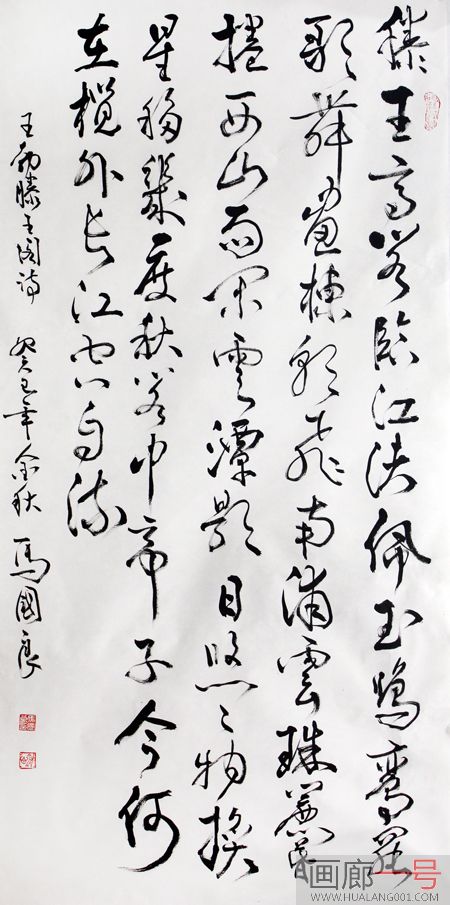 滕王高阁臨江渚佩玉鳴鸞罷
歌舞畫棟朝飛南浦雲珠簾暮
捲西山雨闲雲潭影日悠々物換
星移幾度秋阁中帝子今何
在檻外長江空自流
王勃滕王阁诗 癸巳年金秋 馬國良
画廊一号
WWW.HUALANG001.COM